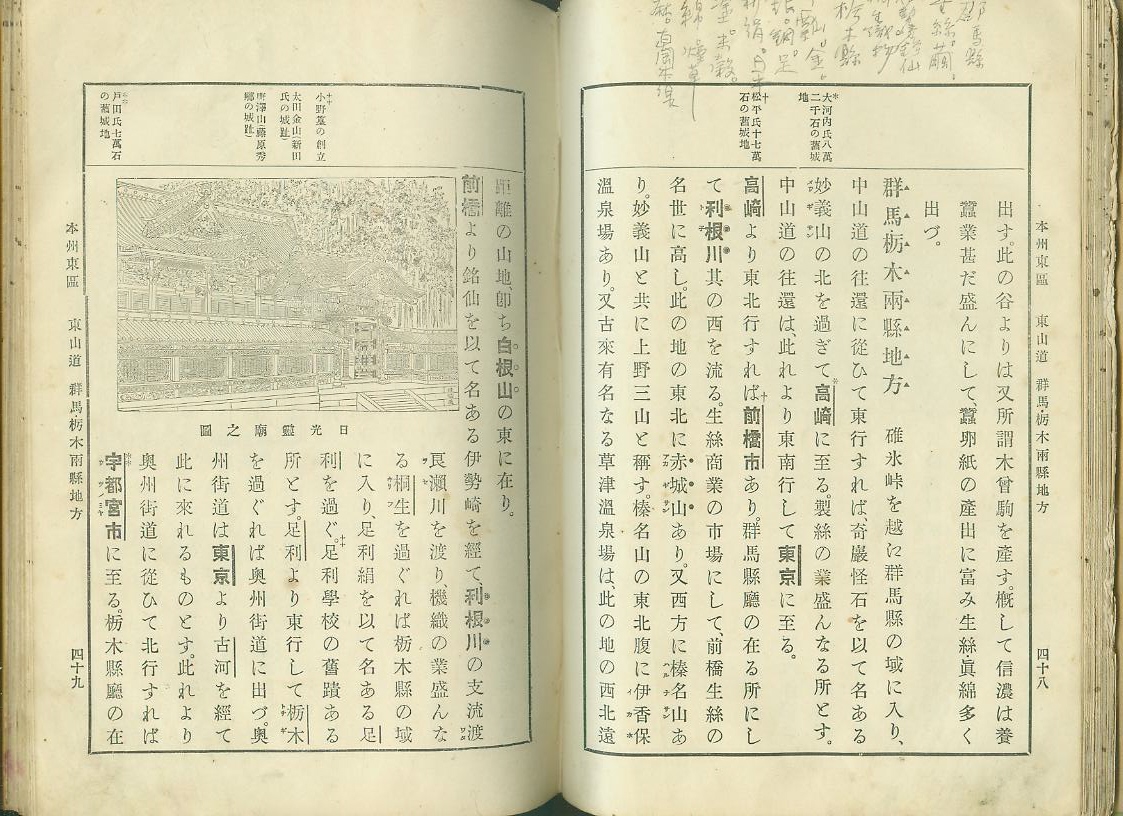 本州東區 東山道 群馬・栃木兩縣地方 四十八
*大河內氏八萬
二千石の舊城
地
†松平氏十七萬
石の舊城地
出す。此の谷よりは又所謂木曾駒を產す。槪して信濃は養
蠶業甚だ盛んにして、蠶卵紙の產出に富み生絲・眞綿多く
出づ。
群馬・栃木兩縣地方 碓氷峠を越ゆ群馬縣の域に入り、
中山道の往還に從ひて東行すれば奇巖怪石を以て名ある
妙義山の北を過ぎて*高崎に至る。製絲の業盛んなる所とす。
中山道の往還は、此れより東南行して東京に至る。
高崎より東北行すれば†前橋市あり。群馬縣廳の在る所にし
て利根川其の西を流る。生絲商業の市場にして、前橋生絲の
名世に高し。此の地の東北に赤城山あり。又西方に榛名山あ
り。妙義山と共に上野三山と稱す。榛名山の東北腹に伊香保
溫泉場あり。又古來有名なる草津溫泉場は、此の地の西北遠
小野篁の創立
太田金山(新田
氏の城趾)
唐澤山(藤原秀
鄕の城趾)
戶田氏七萬石
の舊城地
距離の山地、卽ち白根山の東に在り。
前橋より銘仙を以て名ある伊勢崎を經て、利根川の支流渡
良瀨川を渡り、機織の業盛んな
る桐生を過ぐれば栃木縣の域
に入り、足利絹を以て名ある足
利を過ぐ。足利學校の舊蹟ある
所とす。足利より東行して栃木
を過ぐれば奧州街道に出づ。奧
州街道は東京より古河を經て
此に來れるものとす。此れより
奧州街道に從ひて北行すれば
宇都宮市に至る。栃木縣廳の在
日光靈廟之圖
本州東區 東山道 群馬栃木兩縣地方 四十九